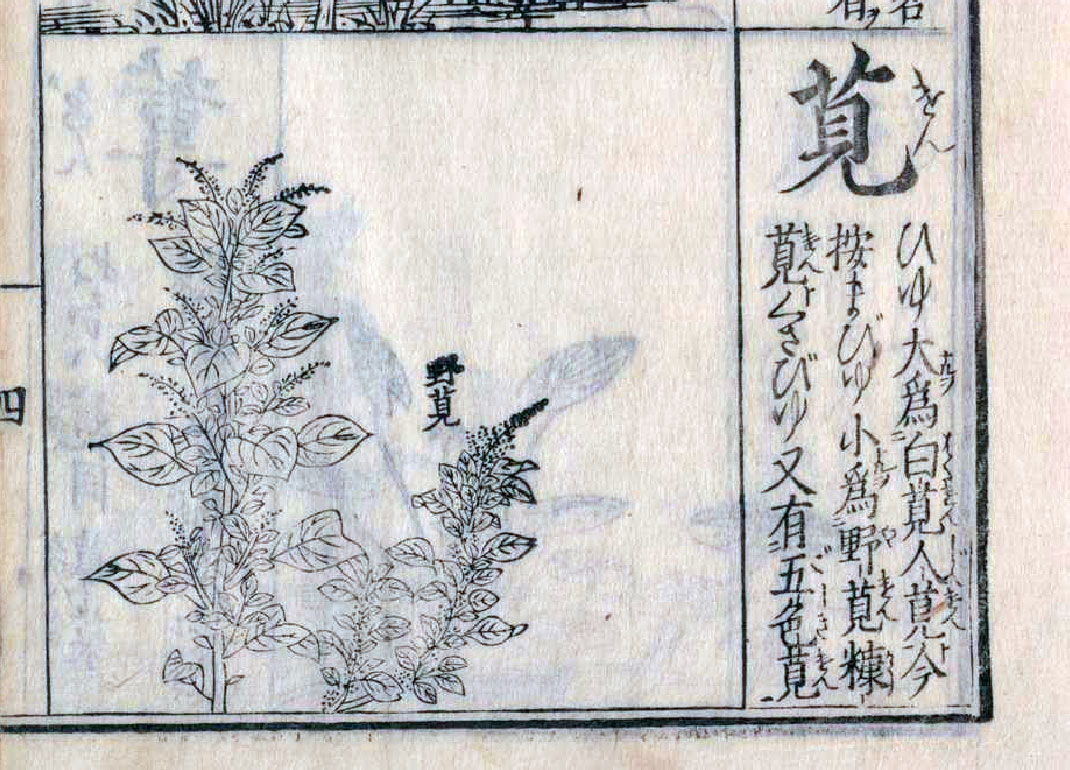 莧
けん
ひゆ大為白莧人莧今
按まびゆ小為野莧糠
莧くさびゆ又有五色莧
野莧
四